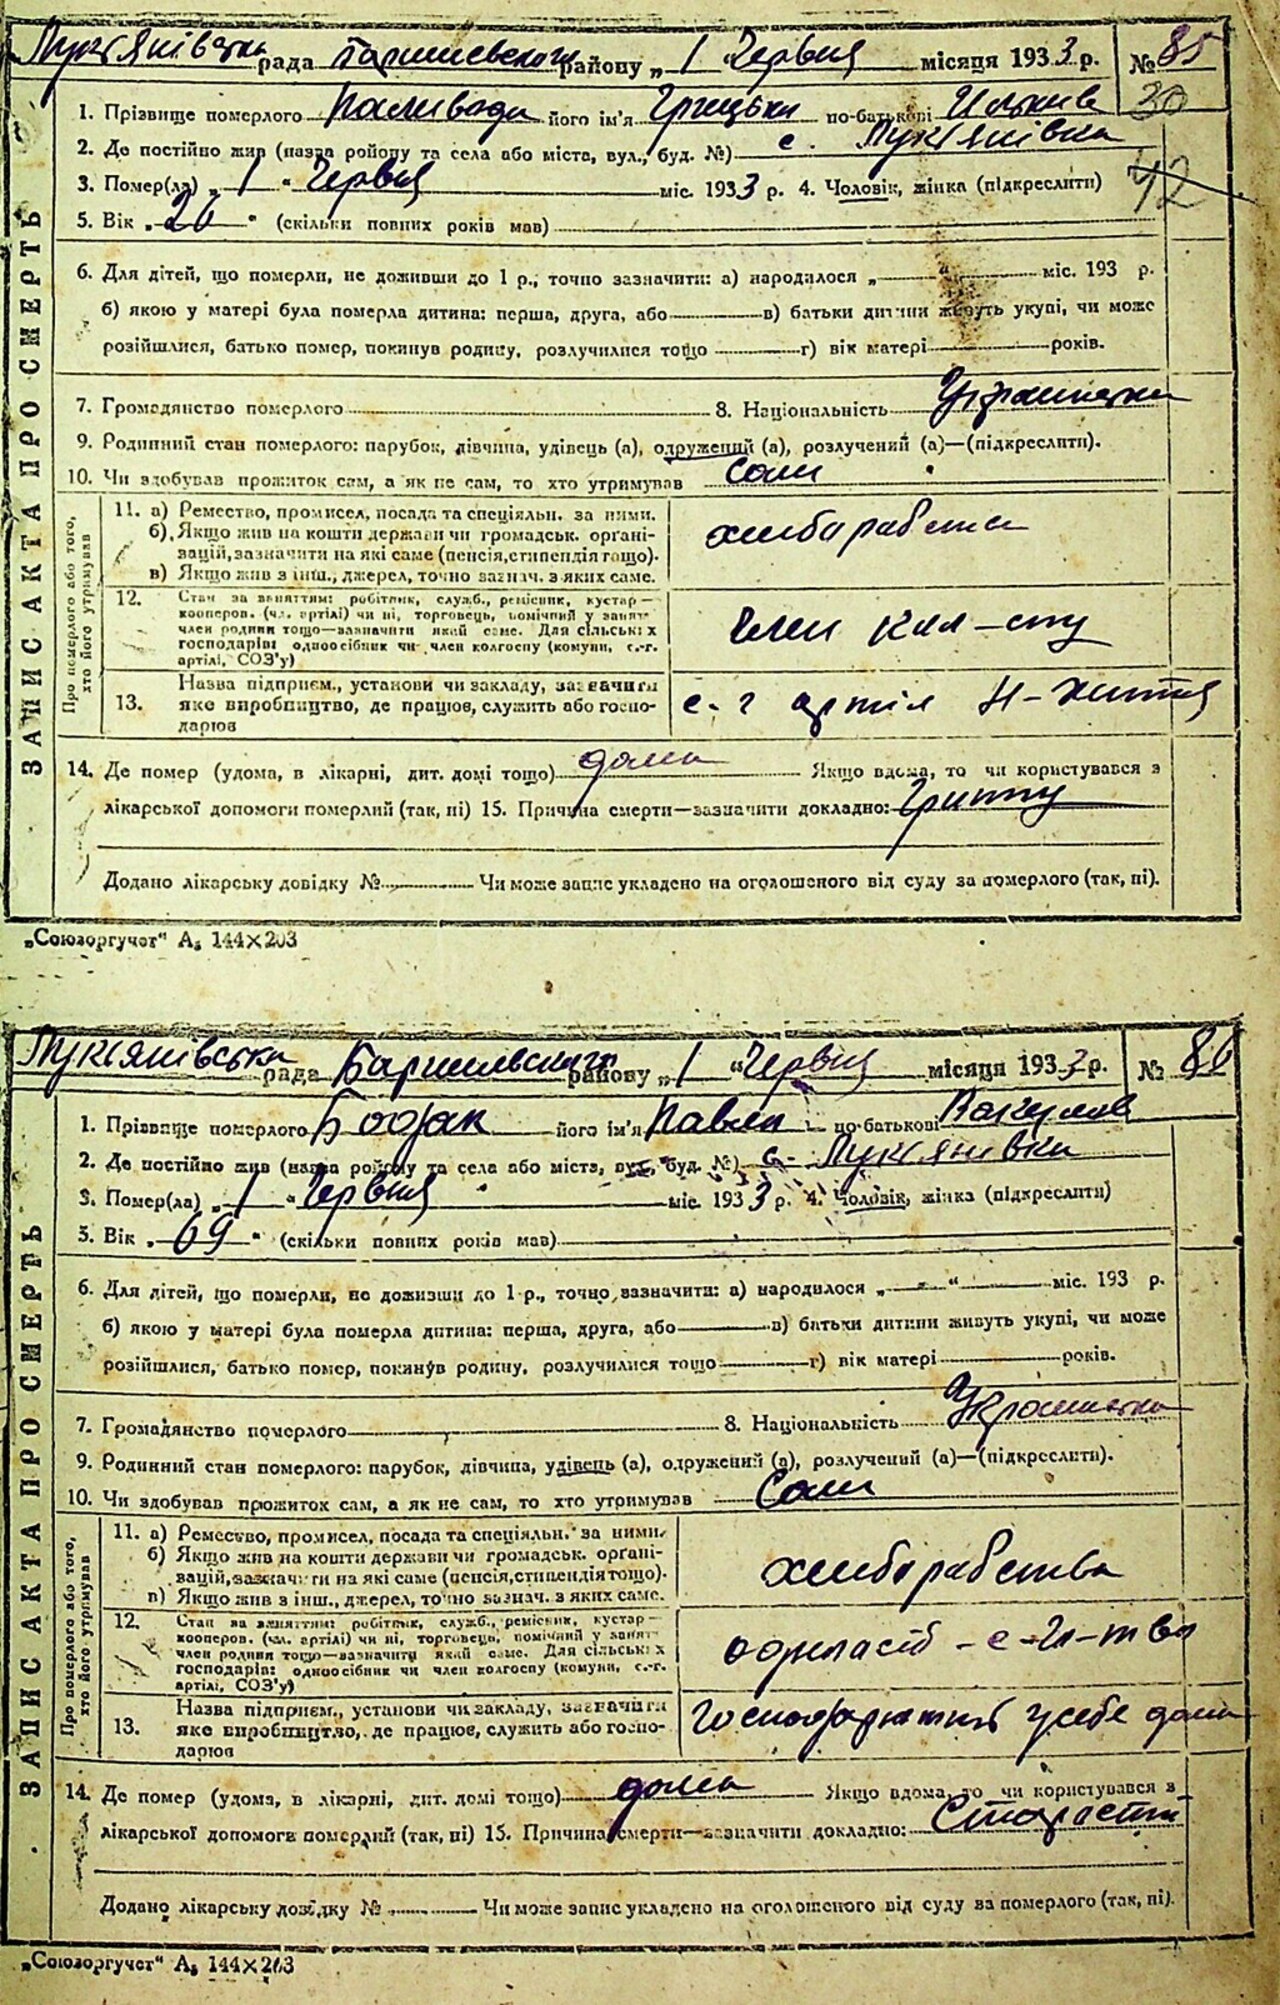 Лукянівська рада Баришевського району „ 1 " Червня місяця 1933 р. № 85
30
1. Прізвище померлого Паливода його ім'я Грицько по-батькові
2. Де постійно жив (назва району та села або міста, вул., буд. №) с. Лукянівка
3. Помер(ла) „ 1 " Червня міс. 1933 р. 4. Чоловік, жінка (підкреслити)
42
5. Вік „ " (скільки повних років мав)
6. Для дітей, що померли, не доживши до 1 р., точно зазначити: а) народилося „ " міс. 193 р.
б) якою у матері була померла дитина: перша, друга, або в) батьки дитини живуть укупі, чи може
розійшлися, батько помер, покинув родину, розлучилися тощо г) вік матері років.
7. Громадянство померлого 8. Національність
9. Родинний стан померлого: парубок, дівчина, удівець (а), одружений (а), розлучений (а)—(підкреслити).
10. Чи здобував прожиток сам, а як не сам, то хто утримував Сам
ЗАПИС АКТА ПРО СМЕРТЬ
Про померлого або того, хто його утримував
11. а) Ремество, промисел, посада та спеціяльн. за ними.
б) Якщо жив на кошти держави чи громадськ. органі-
зацій, зазначити на які саме (пенсія, стипендія тощо).
в) Якщо жив з інш., джерел, точно зазнач. з яких саме.
12. Стан за заняттям: робітник, служб., ремісник, кустар—
кооперов. (чл. артілі) чи ні, торговець, помічний у занят.
член родини тощо—зазначити який саме. Для сільськіх
господарів: одноосібник чи член колгоспу (комуни, с.-г.
артілі, СОЗ'у)
член кол-спу
13. Назва підприєм., установи чи закладу, зазначити
яке виробництво, де працює, служить або госпо-
дарює
с-г артіл Н-Життя
14. Де помер (удома, в лікарні, дит. домі тощо) дома Якщо вдома, то чи користувався з
лікарської допомоги померлий (так, ні) 15. Причина смерти—зазначити докладно: Гриппу
Додано лікарську довідку № Чи може запис укладено на оголошеного від суду за померлого (так, ні).
„Союзоргучет" А₅ 144×203
Лукянівська рада Баришевського району „ 1 " Червня місяця 1933 р. № 86
1. Прізвище померлого Бодяк його ім'я Павло по-батькові
2. Де постійно жив (назва району та села або міста, вул., буд. №) с. Лукянівка
3. Помер(ла) „ 1 " Червня міс. 1933 р. 4. Чоловік, жінка (підкреслити)
5. Вік „ 69 " (скільки повних років мав)
6. Для дітей, що померли, не доживши до 1 р., точно зазначити: а) народилося „ " міс. 193 р.
б) якою у матері була померла дитина: перша, друга, або в) батьки дитини живуть укупі, чи може
розійшлися, батько помер, покинув родину, розлучилися тощо г) вік матері років.
7. Громадянство померлого 8. Національність
9. Родинний стан померлого: парубок, дівчина, удівець (а), одружений (а), розлучений (а)—(підкреслити).
10. Чи здобував прожиток сам, а як не сам, то хто утримував Сам
ЗАПИС АКТА ПРО СМЕРТЬ
Про померлого або того, хто його утримував
11. а) Ремество, промисел, посада та спеціяльн. за ними.
б) Якщо жив на кошти держави чи громадськ. органі-
зацій, зазначити на які саме (пенсія, стипендія тощо).
в) Якщо жив з інш., джерел, точно зазнач. з яких саме.
хлібарабства
12. Стан за заняттям: робітник, служб., ремісник, кустар—
кооперов. (чл. артілі) чи ні, торговець, помічний у занят.
член родини тощо—зазначити який саме. Для сільськіх
господарів: одноосібник чи член колгоспу (комуни, с.-г.
артілі, СОЗ'у)
13. Назва підприєм., установи чи закладу, зазначити
яке виробництво, де працює, служить або госпо-
дарює
у себе дома
14. Де помер (удома, в лікарні, дит. домі тощо) дома Якщо вдома, то чи користувався з
лікарської допомоги померлий (так, ні) 15. Причина смерти—зазначити докладно: Старасти
Додано лікарську довідку № Чи може запис укладено на оголошеного від суду за померлого (так, ні).
„Союзоргучет" А₅ 144×203